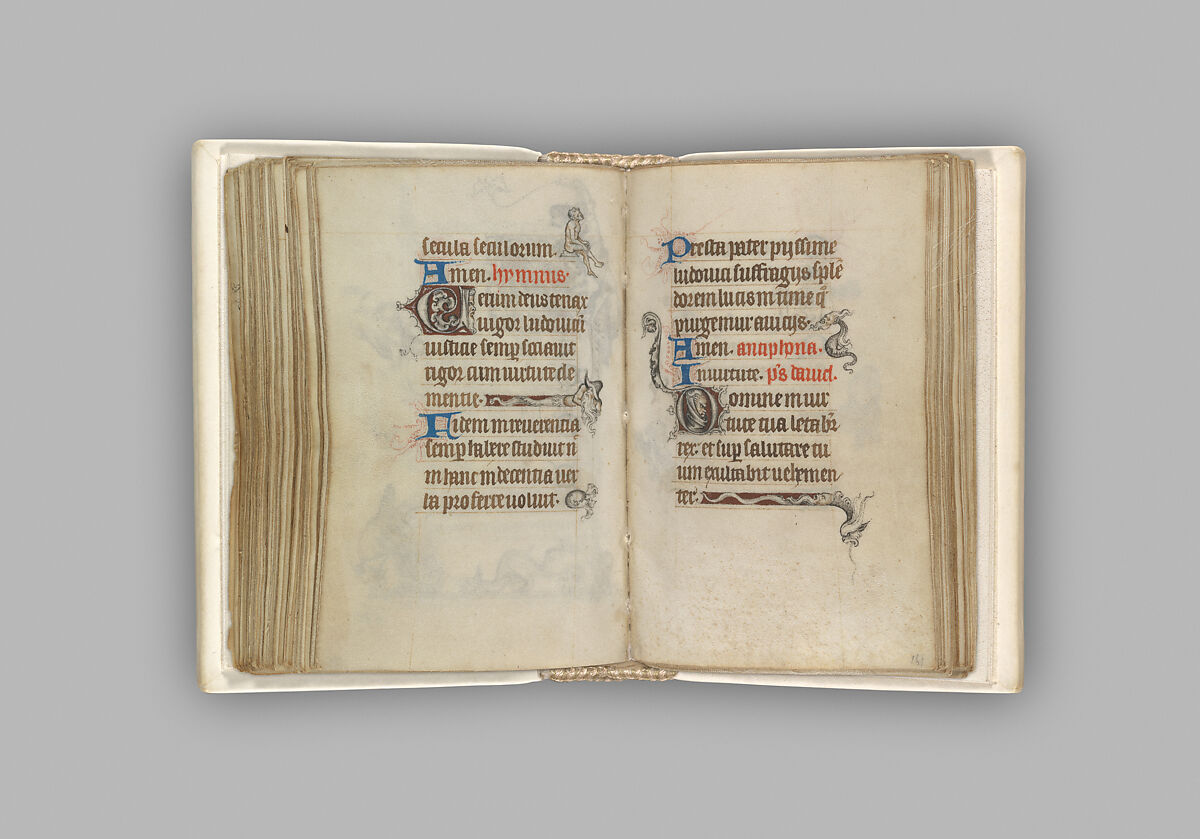 secula seculorum.
Amen. hymnus.
Tecum deus tenax
vigor ludovici
iusticie semp sociavit
rigor cum virtute cle
mentie.
Fidem in reverentia
semp habere studuit n
in hanc indecentia ver
ba proferre voluit.
Presta pater pyssime
ludovici suffragiis sple
dorem lucis intime q
purgemur a viciis.
Amen. antiphona.
In virtute. ps david.
Domine in vir
tute tua letabr
rex. et sup salutare tu
um exultabit vehemen
ter.
151